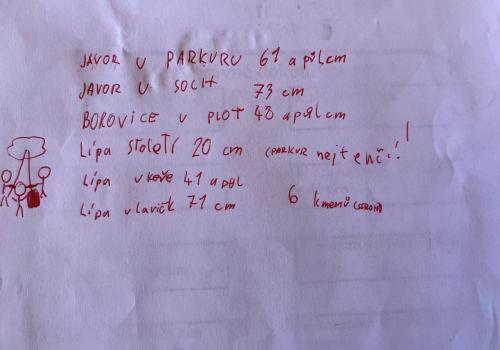 JAVOR U PARKURU 61 a půl cm
JAVOR U SOCH 73 cm
BOROVICE U PLOT 48 a půl cm
Lípa STOLETÍ 20 cm (PARKUR nejtenčí!!
Lípa u keře 41 a půl
Lípa u lavičk 71 cm 6 kmenů (STROM)